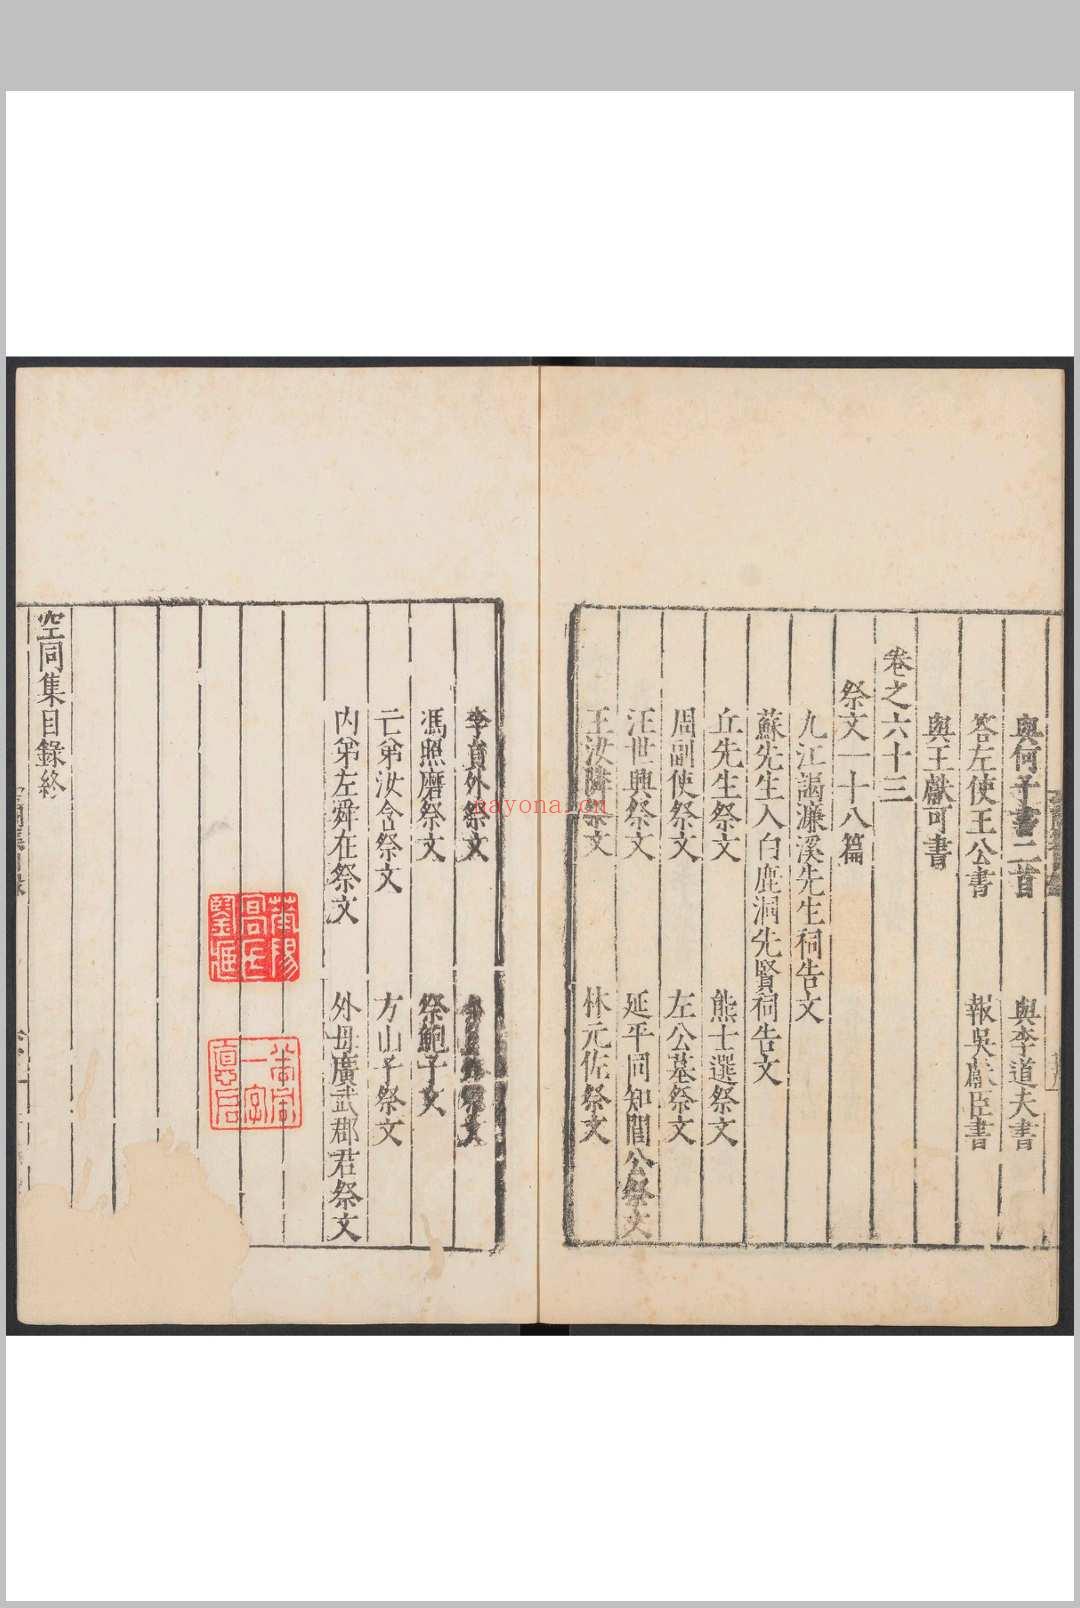 與何子書二首 與李道夫書
答左使王公書 報吳獻臣書
與王獻可書
卷之六十三
祭文一十八篇
九江謁濂溪先生祠告文
蘇先生入白鹿洞先賢祠告文
丘先生祭文 熊士選祭文
周副使祭文 左公墓祭文
汪世興祭文 延平同知閻公祭文
王汝隣祭文 林元佐祭文
李員外祭文
馮照磨祭文 祭鮑子文
亡弟汝含祭文 方山子祭文
內弟左舜在祭文 外母廣武郡君祭文
空同集目錄終
nayona.cn